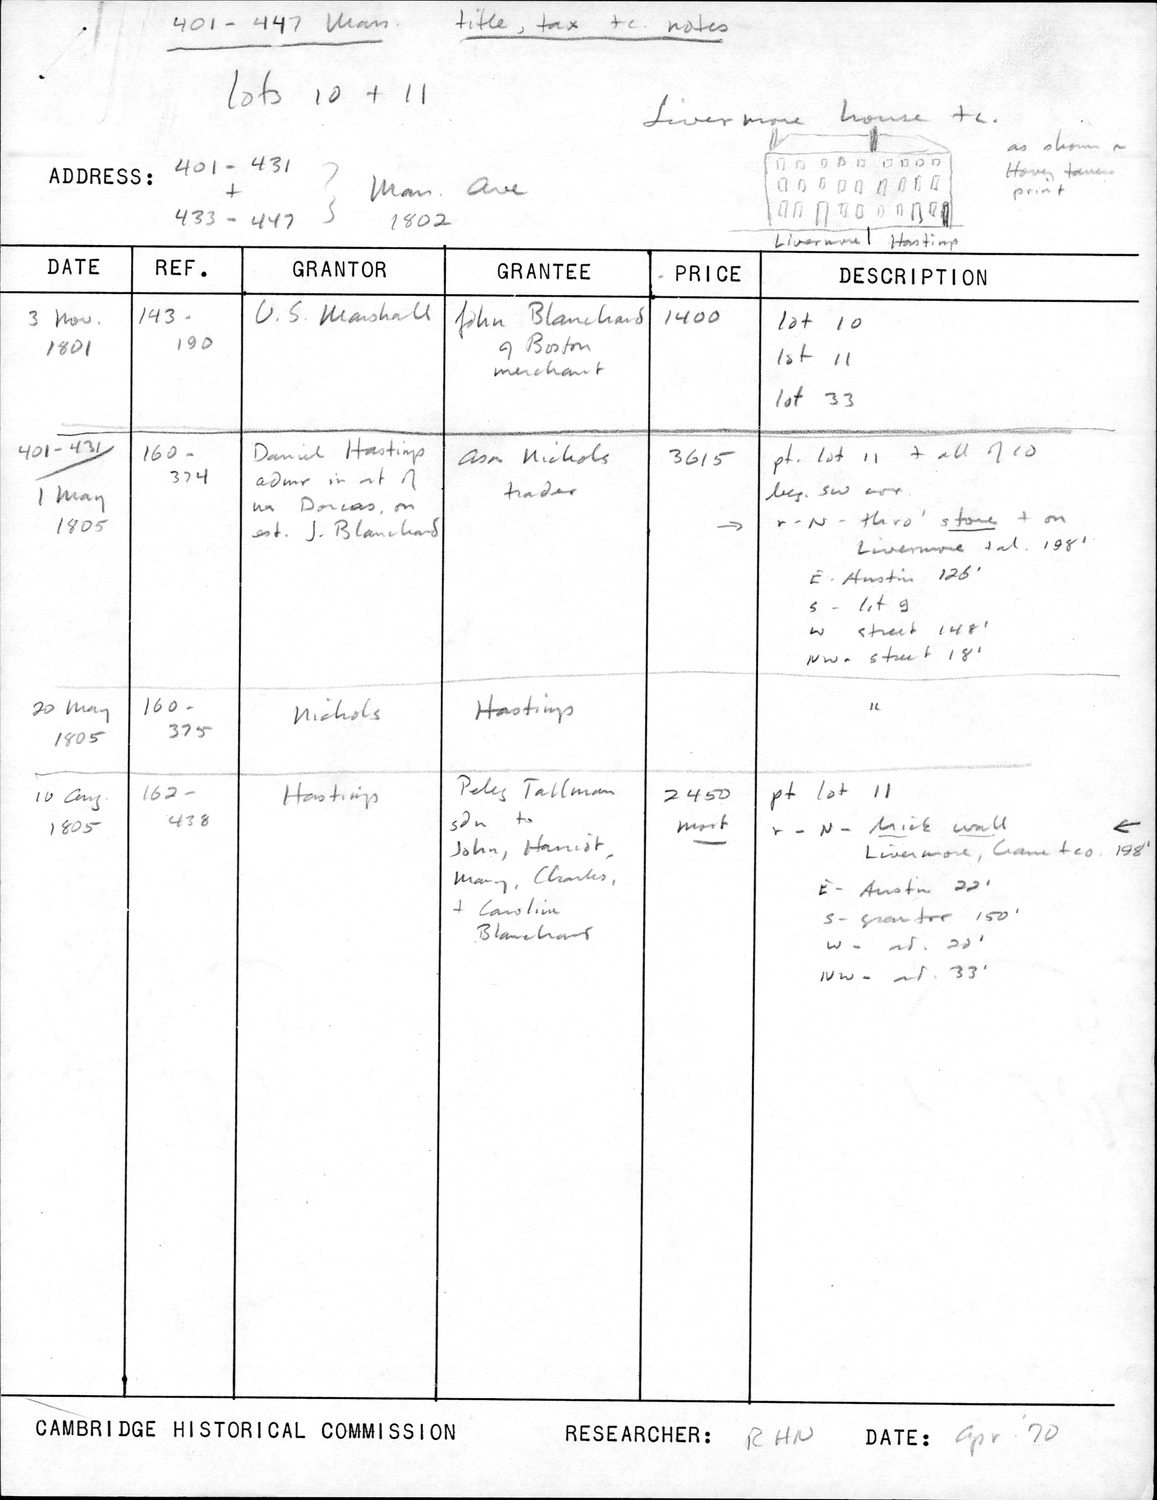 401 - 447 Mass. title, tax &c. notes
lots 10 + 11
Livermore house &c.
as shown
Hovey
print
ADDRESS: 401 - 431
+
433 - 447
Mass. Ave
1802
Livermore | Hastings
DATE REF. GRANTOR GRANTEE PRICE DESCRIPTION
3 Nov.
1801
143 -
190
U.S. Marshall
John Blanchard
of Boston
merchant
1400
lot 10
lot 11
lot 33
401 - 431
1 May
1805
160 -
374
Daniel Hastings
admr in rt of
Dorcas, on
est. J. Blanchard
Asa Nichols
trader
3615
pt. lot 11 + all of 10
beg. SW cor.
→ r - N - thro' store + on
Livermore + al. 198'
E - Austin 126'
S - lot 9
W street 148'
NW - street 18'
20 May
1805
160 -
375
Nichols
Hastings
"
10 Aug.
1805
162 -
438
Hastings
Peleg Tallman
gdn to
John, Harriot,
Mary, Charles,
+ Caroline
Blanchard
2450
mort
pt lot 11
r - N - brick wall ←
Livermore, Crane + co. 198'
E - Austin 22'
S - grantor 150'
W - rd. 22'
NW - rd. 33'
CAMBRIDGE HISTORICAL COMMISSION RESEARCHER: RHN DATE: Apr '70